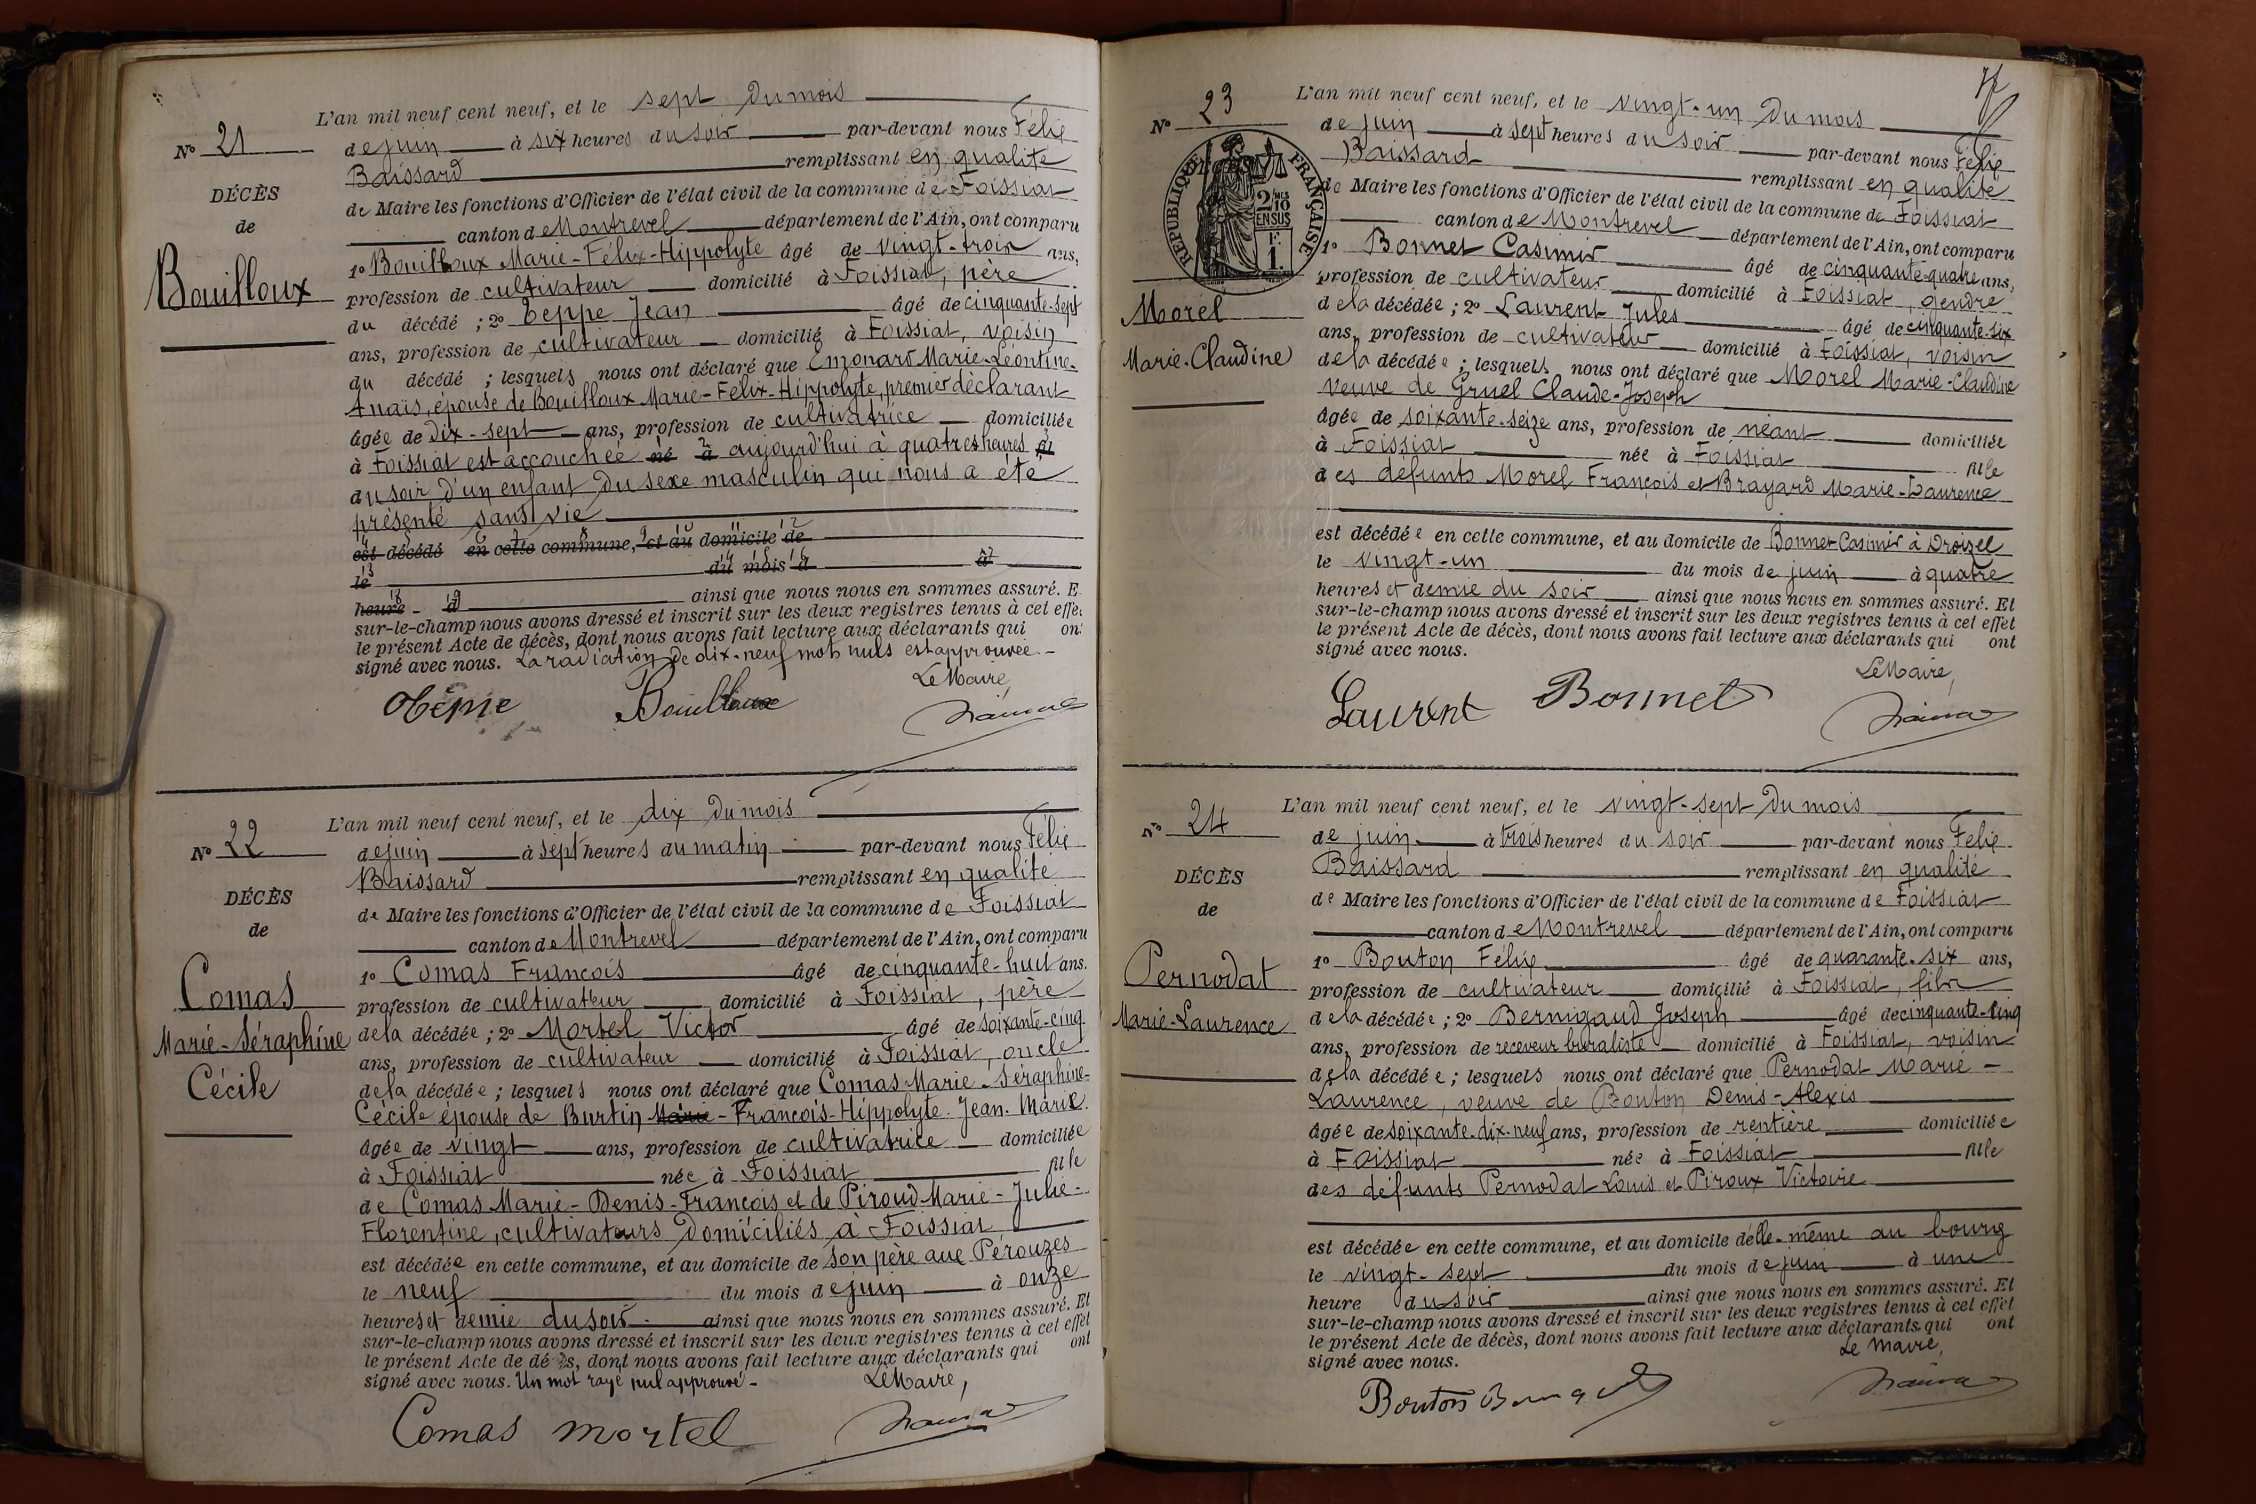 L'an mil neuf cent neuf, et le sept du mois
N° 21
de juin à six heures du soir par-devant nous Félix
Baissard remplissant en qualité
DÉCÈS
de Maire les fonctions d'Officier de l'état civil de la commune de Foissiat
de
canton de Montrevel département de l'Ain, ont comparu
Bouilloux
1° Bouilloux Marie-Félix-Hippolyte âgé de vingt-trois ans,
profession de cultivateur domicilié à Foissiat, père
du décédé ; 2° Teppe Jean âgé de cinquante-sept
ans, profession de cultivateur domicilié à Foissiat, voisin
du décédé ; lesquels nous ont déclaré que Emonard Marie-Léontine-
Anaïs, épouse de Bouilloux Marie-Félix-Hippolyte, premier déclarant
âgée de dix-sept ans, profession de cultivatrice domiciliée
à Foissiat est accouchée né à aujourd'hui à quatre heures et
du soir d'un enfant du sexe masculin qui nous a été
présenté sans vie
est décédé en cette commune, et au domicile de
le du mois d à
heure d ainsi que nous nous en sommes assuré. E
sur-le-champ nous avons dressé et inscrit sur les deux registres tenus à cet effe
le présent Acte de décès, dont nous avons fait lecture aux déclarants qui on
signé avec nous. La radiation de dix-neuf mots nuls est approuvée.-
Le Maire,
Téppe Bouilloux
N° 22
L'an mil neuf cent neuf, et le dix du mois
de juin à sept heures du matin par-devant nous Félix
Baissard remplissant en qualité
DÉCÈS
de Maire les fonctions d'Officier de l'état civil de la commune de Foissiat
de
canton de Montrevel département de l'Ain, ont comparu
Comas
Marie-Séraphine
Cécile
1° Comas François âgé de cinquante-huit ans.
profession de cultivateur domicilié à Foissiat, père
de la décédée ; 2° Mortel Victor âgé de soixante-cinq
ans, profession de cultivateur domicilié à Foissiat, oncle
de la décédée ; lesquels nous ont déclaré que Comas Marie-Séraphine-
Cécile épouse de Burtin Marie-François-Hippolyte-Jean-Marie
âgée de vingt ans, profession de cultivatrice domiciliée
à Foissiat née à Foissiat fille
de Comas Marie-Denis-François et de Piroud Marie-Julie-
Florentine, cultivateurs domiciliés à Foissiat
est décédée en cette commune, et au domicile de son père aux Pérouzes
le neuf du mois de juin à onze
heures et demie du soir ainsi que nous nous en sommes assuré. Et
sur-le-champ nous avons dressé et inscrit sur les deux registres tenus à cet effet
le présent Acte de décès, dont nous avons fait lecture aux déclarants qui ont
signé avec nous. Un mot rayé nul approuvé-
Le Maire,
Comas mortel
N° 23
RÉPUBLIQUE FRANÇAISE
2/10 EN SUS
1 F.
L'an mil neuf cent neuf, et le vingt-un du mois
de juin à sept heures du soir par-devant nous Félix
Baissard remplissant en qualité
de Maire les fonctions d'Officier de l'état civil de la commune de Foissiat
canton de Montrevel département de l'Ain, ont comparu
Morel
Marie-Claudine
1° Bonnet Casimir âgé de cinquante-quatre ans,
profession de cultivateur domicilié à Foissiat, gendre
de la décédée ; 2° Laurent Jules âgé de cinquante-six
ans, profession de cultivateur domicilié à Foissiat, voisin
de la décédée ; lesquels nous ont déclaré que Morel Marie-Claudine
veuve de Gruel Claude-Joseph
âgée de soixante-seize ans, profession de néant domiciliée
à Foissiat née à Foissiat fille
des défunts Morel François et Brayard Marie-Laurence
est décédée en cette commune, et au domicile de Bonnet Casimir à Droizel
le vingt-un du mois de juin à quatre
heures et demie du soir ainsi que nous nous en sommes assuré. Et
sur-le-champ nous avons dressé et inscrit sur les deux registres tenus à cet effet
le présent Acte de décès, dont nous avons fait lecture aux déclarants qui ont
signé avec nous.
Le Maire,
Laurent Bonnet
N° 24
L'an mil neuf cent neuf, et le vingt-sept du mois
de juin à trois heures du soir par-devant nous Félix
Baissard remplissant en qualité
DÉCÈS
de Maire les fonctions d'Officier de l'état civil de la commune de Foissiat
de
canton de Montrevel département de l'Ain, ont comparu
Pernodat
Marie-Laurence
1° Bouton Félix âgé de quarante-six ans,
profession de cultivateur domicilié à Foissiat, fils
de la décédée ; 2° Bernigaud Joseph âgé de cinquante-cinq
ans, profession de receveur buraliste domicilié à Foissiat, voisin
de la décédée ; lesquels nous ont déclaré que Pernodat Marie-
Laurence, veuve de Bouton Denis-Alexis
âgée de soixante-dix-neuf ans, profession de rentière domiciliée
à Foissiat née à Foissiat fille
des défunts Pernodat Louis et Piroux Victoire
est décédée en cette commune, et au domicile d'elle-même au bourg
le vingt-sept du mois de juin à une
heure du soir ainsi que nous nous en sommes assuré. Et
sur-le-champ nous avons dressé et inscrit sur les deux registres tenus à cet effet
le présent Acte de décès, dont nous avons fait lecture aux déclarants qui ont
signé avec nous.
Le Maire,
Bouton